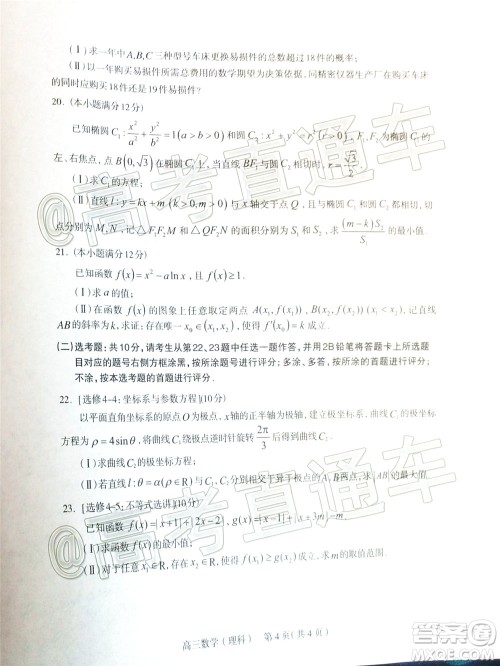 (Ⅰ)求一年中A,B,C三种型号车床更换易损件的总数超过18件的概率；
(Ⅱ)以一年购买易损件所需总费用的数学期望为决策依据，问精密仪器生产厂在购买车床
的同时应购买18件还是19件易损件?
20. (本小题满分12分)
已知椭圆 C₁: x²/a² + y²/b² = 1(a>b>0) 和圆 C₂: x² + y² = r²(r>0), F₁, F₂ 为椭圆 C₁ 的
左、右焦点，点 B(0,√3) 在椭圆 C₁ 上，当直线 BF₁ 与圆 C₂ 相切时，r=√3/2.
(Ⅰ)求 C₁ 的方程；
(Ⅱ)直线 l: y=kx+m(k>0,m>0) 与 x 轴交于点 Q，且与椭圆 C₁ 和圆 C₂ 都相切，切
点分别为 M,N，记 △F₁F₂M 和 △QF₂N 的面积分别为 S₁ 和 S₂，求 (m−k)S₂/S₁ 的最小值.
21. (本小题满分12分)
已知函数 f(x)=x²−a ln x，且 f(x)≥1.
(Ⅰ)求 a 的值；
(Ⅱ)在函数 f(x) 的图象上任意取定两点 A(x₁,f(x₁)), B(x₂,f(x₂))(x₁<x₂)，记直线
AB 的斜率为 k，求证：存在唯一 x₀∈(x₁,x₂)，使得 f′(x₀)=k 成立.
(二)选考题：共10分，请考生从第22、23题中任选一题作答，并用2B铅笔将答题卡上所选题
目对应的题号右侧方框涂黑，按所涂题号进行评分；多涂、多答，按所涂的首题进行评分；
不涂，按本选考题的首题进行评分.
22. [选修4-4:坐标系与参数方程](10分)
以平面直角坐标系的原点 O 为极点，x轴的正半轴为极轴，建立极坐标系，曲线C₁的极坐标
方程为 ρ=4sinθ，将曲线 C₁ 绕极点逆时针旋转 2π/3 后得到曲线 C₂.
(Ⅰ)求曲线 C₂ 的极坐标方程；
(Ⅱ)若直线 l: θ=α(ρ∈R) 与 C₁, C₂ 分别相交于异于极点的 A,B 两点，求
23. [选修4-5:不等式选讲](10分)
已知函数 f(x)=|x+1|+|2x−2|, g(x)=|x+m|+|x+3m|−m.
(Ⅰ)求函数 f(x) 的最小值；
(Ⅱ)对于任意 x₁∈R，存在 x₂∈R，使得 f(x₁)≥g(x₂) 成立，求 m 的取值范围.
高三数学(理科) 第4页(共4页)
@高考直通车
@高考直通车